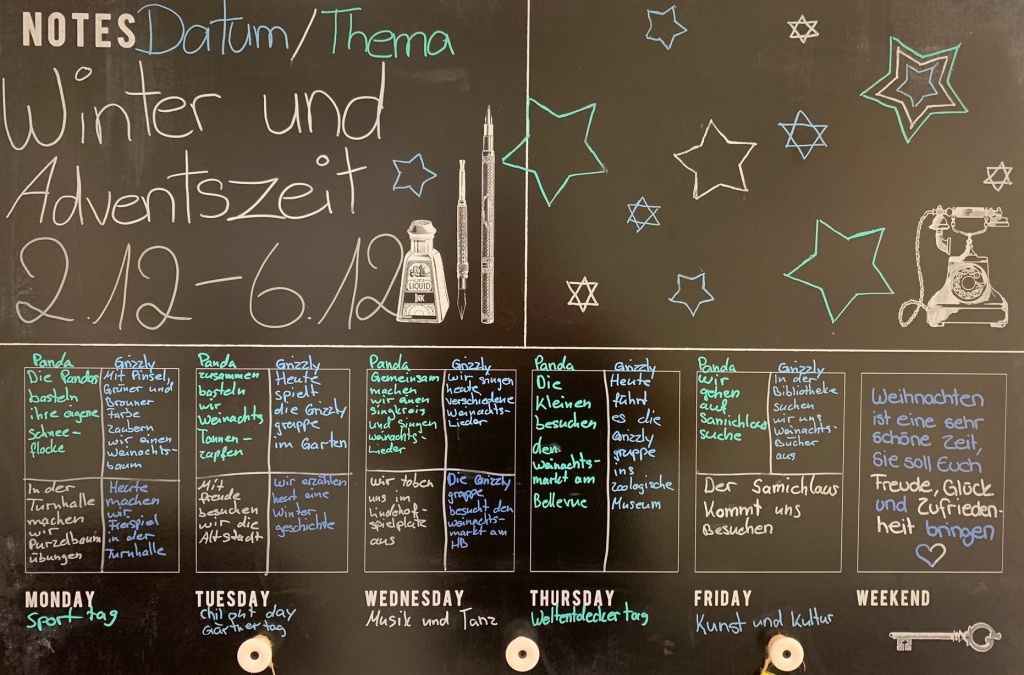 NOTES Datum/Thema
Winter und
Adventszeit
2.12-6.12
LIQUID
INK
Panda
Die Pandas
basteln
ihre eigene
Schnee-
flocke
Grizzly
Mit Pinsel,
Grüner und
Brauner
Farbe
Zaubern
wir einen
weinachts-
baum
In der
Turnhalle
machen
wir
Purzelbaum
übungen
Heute
machen
wir
Freispiel
in der
Turnhalle
MONDAY
Sport tag
Panda
zusammen
basteln
wir
weinachts
Tannen-
zapfen
Grizzly
Heute
spielt
die Grizzly
gruppe
im Garten
Mit
freude
besuchen
wir die
Altstadt
wir erzählen
heut eine
Winter
geschichte
TUESDAY
chil out day
Gärtner tag
Panda
Gemeinsam
machen
wir einen
Singkreis
und singen
wainachts-
Lieder
Grizzly
wir singen
heute
verschiedene
Weinachts-
Lieder
wir toben
uns im
Lindehof-
spielplatz
aus
Die Grizzly
gruppe
besucht den
weinachts-
markt am
HB
WEDNESDAY
Musik und Tanz
Panda
Die
Kleinen
besuchen
den
weinachts-
markt am
Bellevue
Grizzly
Heute
führt
es die
Grizzly
gruppe
ins
Zoologische
Museum
THURSDAY
Weltentdecker tag
Panda
wir
gehen
auf
Samichlaus
suche
Grizzly
In der
Bibliotheke
suchen
wir uns
Weinachts-
Bücher
aus
Der Samichlaus
Kommt uns
Besuchen
FRIDAY
Kunst und Kultur
Weihnachten
ist eine sehr
schöne Zeit,
Sie soll Euch
Freude, Glück
und Zufrieden-
heit bringen
WEEKEND